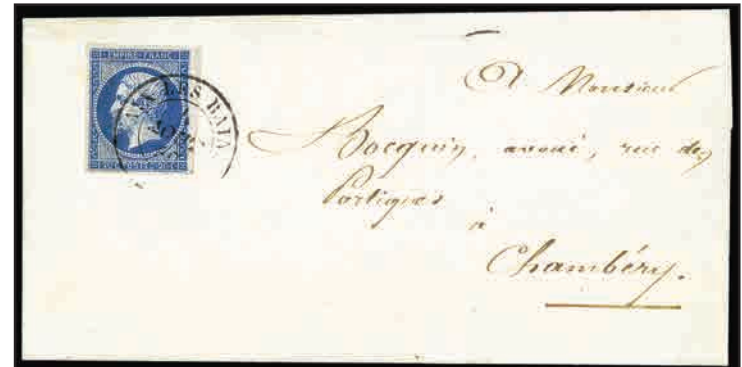 EMPIRE FRANC
AIX LES BAIN
A Monsieur
Bocquin, avoué, rue des
Portiques
à
Chambéry.